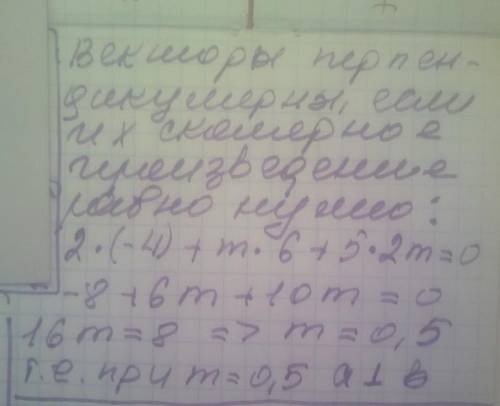 Векторы перпен-
дикулярны, если
их скалярное
произведение
равно нулю:
2·(-4) + m·6 + 5·2m=0
-8 + 6m + 10m = 0
16m = 8 => m = 0,5
т.е. при m = 0,5 a⊥b